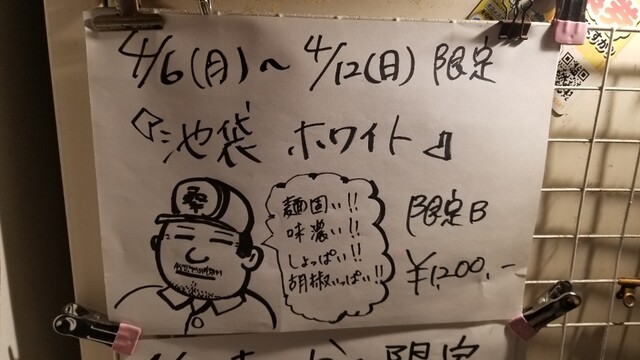 4/6(月)〜4/12(日) 限定
『池袋 ホワイト』
麺固い!!
味濃い!!
しょっぱい!!
胡椒いっぱい!!
限定B
¥1,200.-
限定